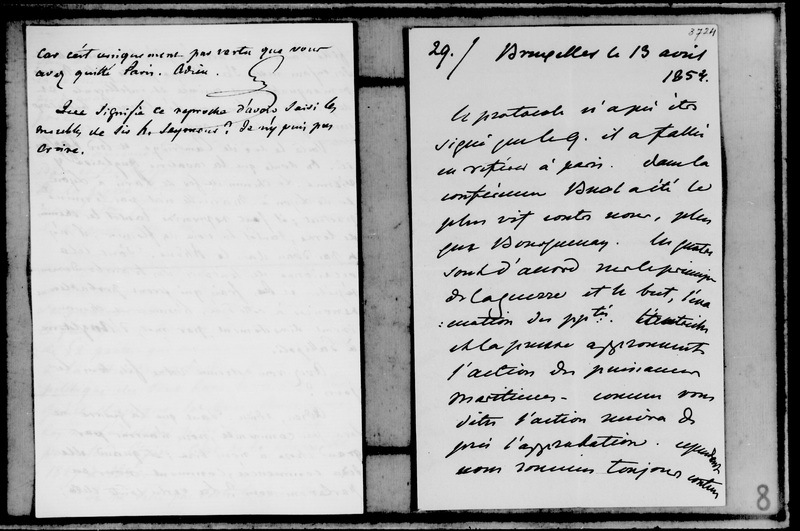 Car c'est uniquement par vertu que vous
avez quitté Paris. Adieu.
Que signifie ce reproche d'avoir saisi les
meubles de Sir H. Seymour? Je n'y puis pas
croire.
3724
29./ Bruxelles le 13 avril
1854.
le protocole n'a pu être
signé que le 9. il a fallu
en référer à paris. dans la
conférence Buol a été le
plus vif contre nous, plus
que Bourqueney. les quatre
sont d'accord sur le principe
de la guerre et le but, l'éva
:cuation des pp.tés
et la prusse approuvent
l'action des puissances
maritimes - comme vous
dites l'action suivra de
près l'approbation. cependant
nous sommes toujours
8